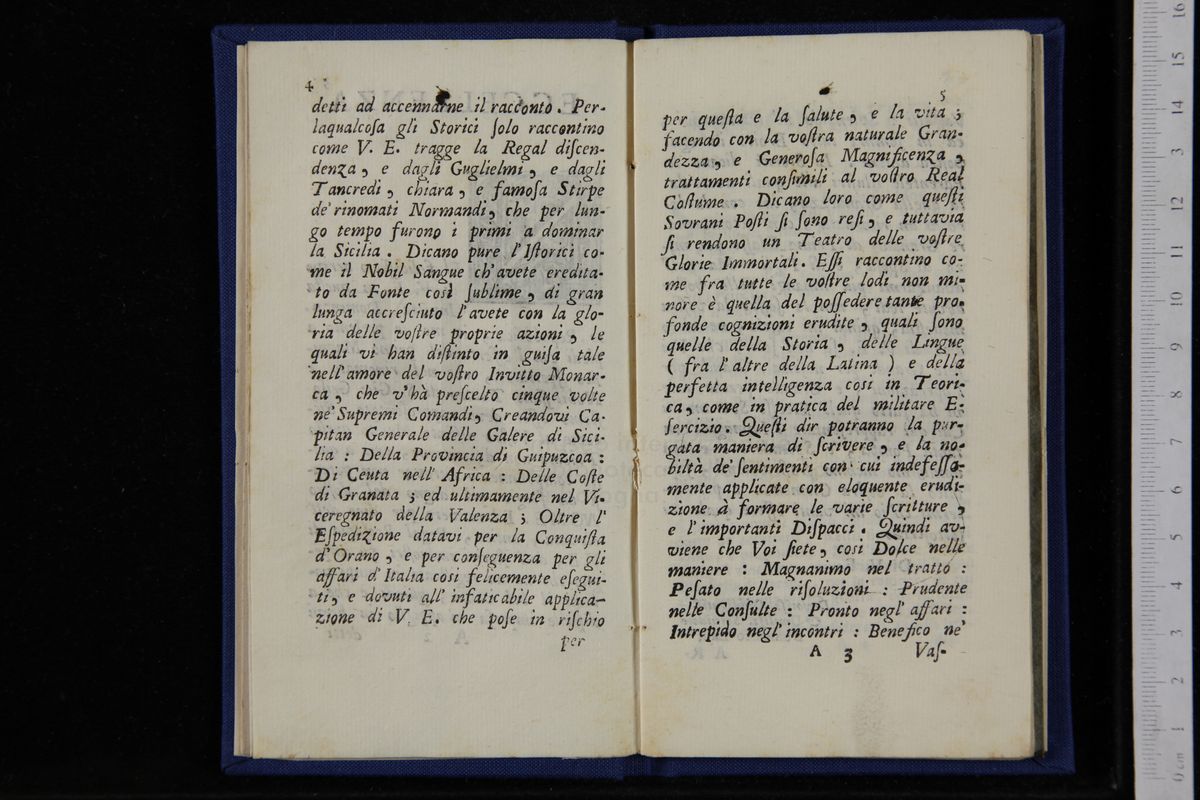 4
detti ad accennarne il racconto. Per-
laqualcoſa gli Storici ſolo raccontino
come V. E. tragge la Regal diſcen-
denza, e dagli Guglielmi, e dagli
Tancredi, chiara, e famoſa Stirpe
de' rinomati Normandi, che per lun-
go tempo furono i primi a dominar
la Sicilia. Dicano pure l'Iſtorici co-
me il Nobil Sangue ch'avete eredita-
to da Fonte così ſublime, di gran
lunga accreſciuto l'avete con la glo-
ria delle voſtre proprie azioni, le
quali vi han diſtinto in guiſa tale
nell'amore del voſtro Invitto Monar-
ca, che v'hà preſcelto cinque volte
ne' Supremi Comandi, Creandovi Ca-
pitan Generale delle Galere di Sici-
lia : Della Provincia di Guipuzcoa :
Di Ceuta nell'Africa : Delle Coſte
di Granata ; ed ultimamente nel Vi-
ceregnato della Valenza ; Oltre l'
Eſpedizione datavi per la Conquiſta
d'Orano, e per conſeguenza per gli
affari d'Italia così felicemente eſegui-
ti, e dovuti all'infaticabile applica-
zione di V. E. che poſe in riſchio
per
5
per queſta e la ſalute, e la vita ;
facendo con la voſtra naturale Gran-
dezza, e Generoſa Magnificenza,
trattamenti conſimili al voſtro Real
Coſtume. Dicano loro come queſti
Sovrani Poſti ſi ſono reſi, e tuttavia
ſi rendono un Teatro delle voſtre
Glorie Immortali. Eſſi raccontino co-
me fra tutte le voſtre lodi non mi-
nore è quella del poſſedere tante pro-
fonde cognizioni erudite, quali ſono
quelle della Storia, delle Lingue
( fra l'altre della Latina ) e della
perfetta intelligenza così in Teori-
ca, come in pratica del militare E-
ſercizio. Queſti dir potranno la pur-
gata maniera di ſcrivere, e la no-
biltà de' ſentimenti con cui indefeſſa-
mente applicate con eloquente erudi-
zione à formare le varie ſcritture,
e l'importanti Diſpacci. Quindi av-
viene che Voi ſiete, così Dolce nelle
maniere : Magnanimo nel tratto :
Peſato nelle riſoluzioni : Prudente
nelle Conſulte : Pronto negl'affari :
Intrepido negl'incontri : Benefico ne'
A 3 Vaſ-
0 cm 1 2 3 4 5 6 7 8 9 10 11 12 13 14 15 16